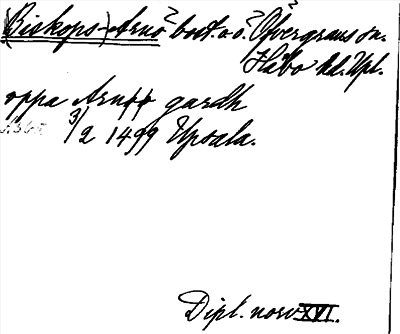 (Biskops-)Arnö? bost. o. ö.? Övergrans sn.
Håbo hd. Upl.
oppa Arnöö gardh
3/2 1499 Upsala.
Dipl. norv XVI.